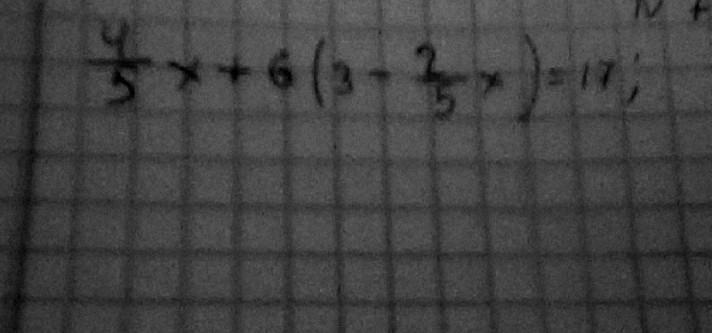 4/5 x + 6 (3 - 2/5 x) = 17;